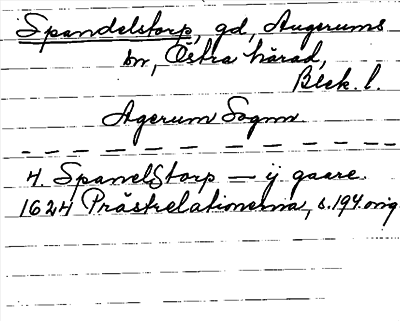 Spandelstorp, gd, Augerums
sn, Östra härad,
Blek. l.
Agerum Sognn
4. Spanelstorp — ij gaare.
1624 Prästrelationerna, s. 194. orig